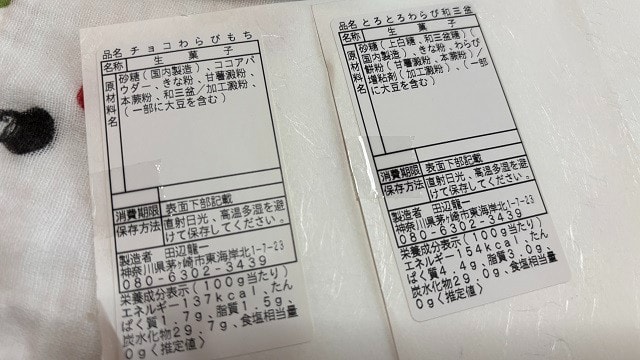 品名 チョコわらびもち
名称 生菓子
原材料名 砂糖(国内製造)、ココアパ
ウダー、きな粉、甘藷澱粉、
本蕨粉、和三盆/加工澱粉、
(一部に大豆を含む)
消費期限 表面下部記載
保存方法 直射日光、高温多湿を避
けて保存してください。
製造者 田辺龍一
神奈川県茅ヶ崎市東海岸北1-7-23
080-6302-3439
栄養成分表示(100g当たり)
エネルギー137kcal、たん
ぱく質1.7g、脂質1.5g、
炭水化物29.7g、食塩相当量
0g〈推定値〉
品名 とろとろわらび和三盆
名称 生菓子
原材料名 砂糖(上白糖、和三盆糖)
(国内製造)、きな粉、わらび
餅粉(甘藷澱粉、本蕨粉)/
増粘剤(加工澱粉)、(一部
に大豆を含む)
消費期限 表面下部記載
保存方法 直射日光、高温多湿を避
けて保存してください。
製造者 田辺龍一
神奈川県茅ヶ崎市東海岸北1-7-23
080-6302-3439
栄養成分表示(100g当たり)
エネルギー154kcal、たん
ぱく質4.4g、脂質3.0g、
炭水化物29.0g、食塩相当量
0g〈推定値〉